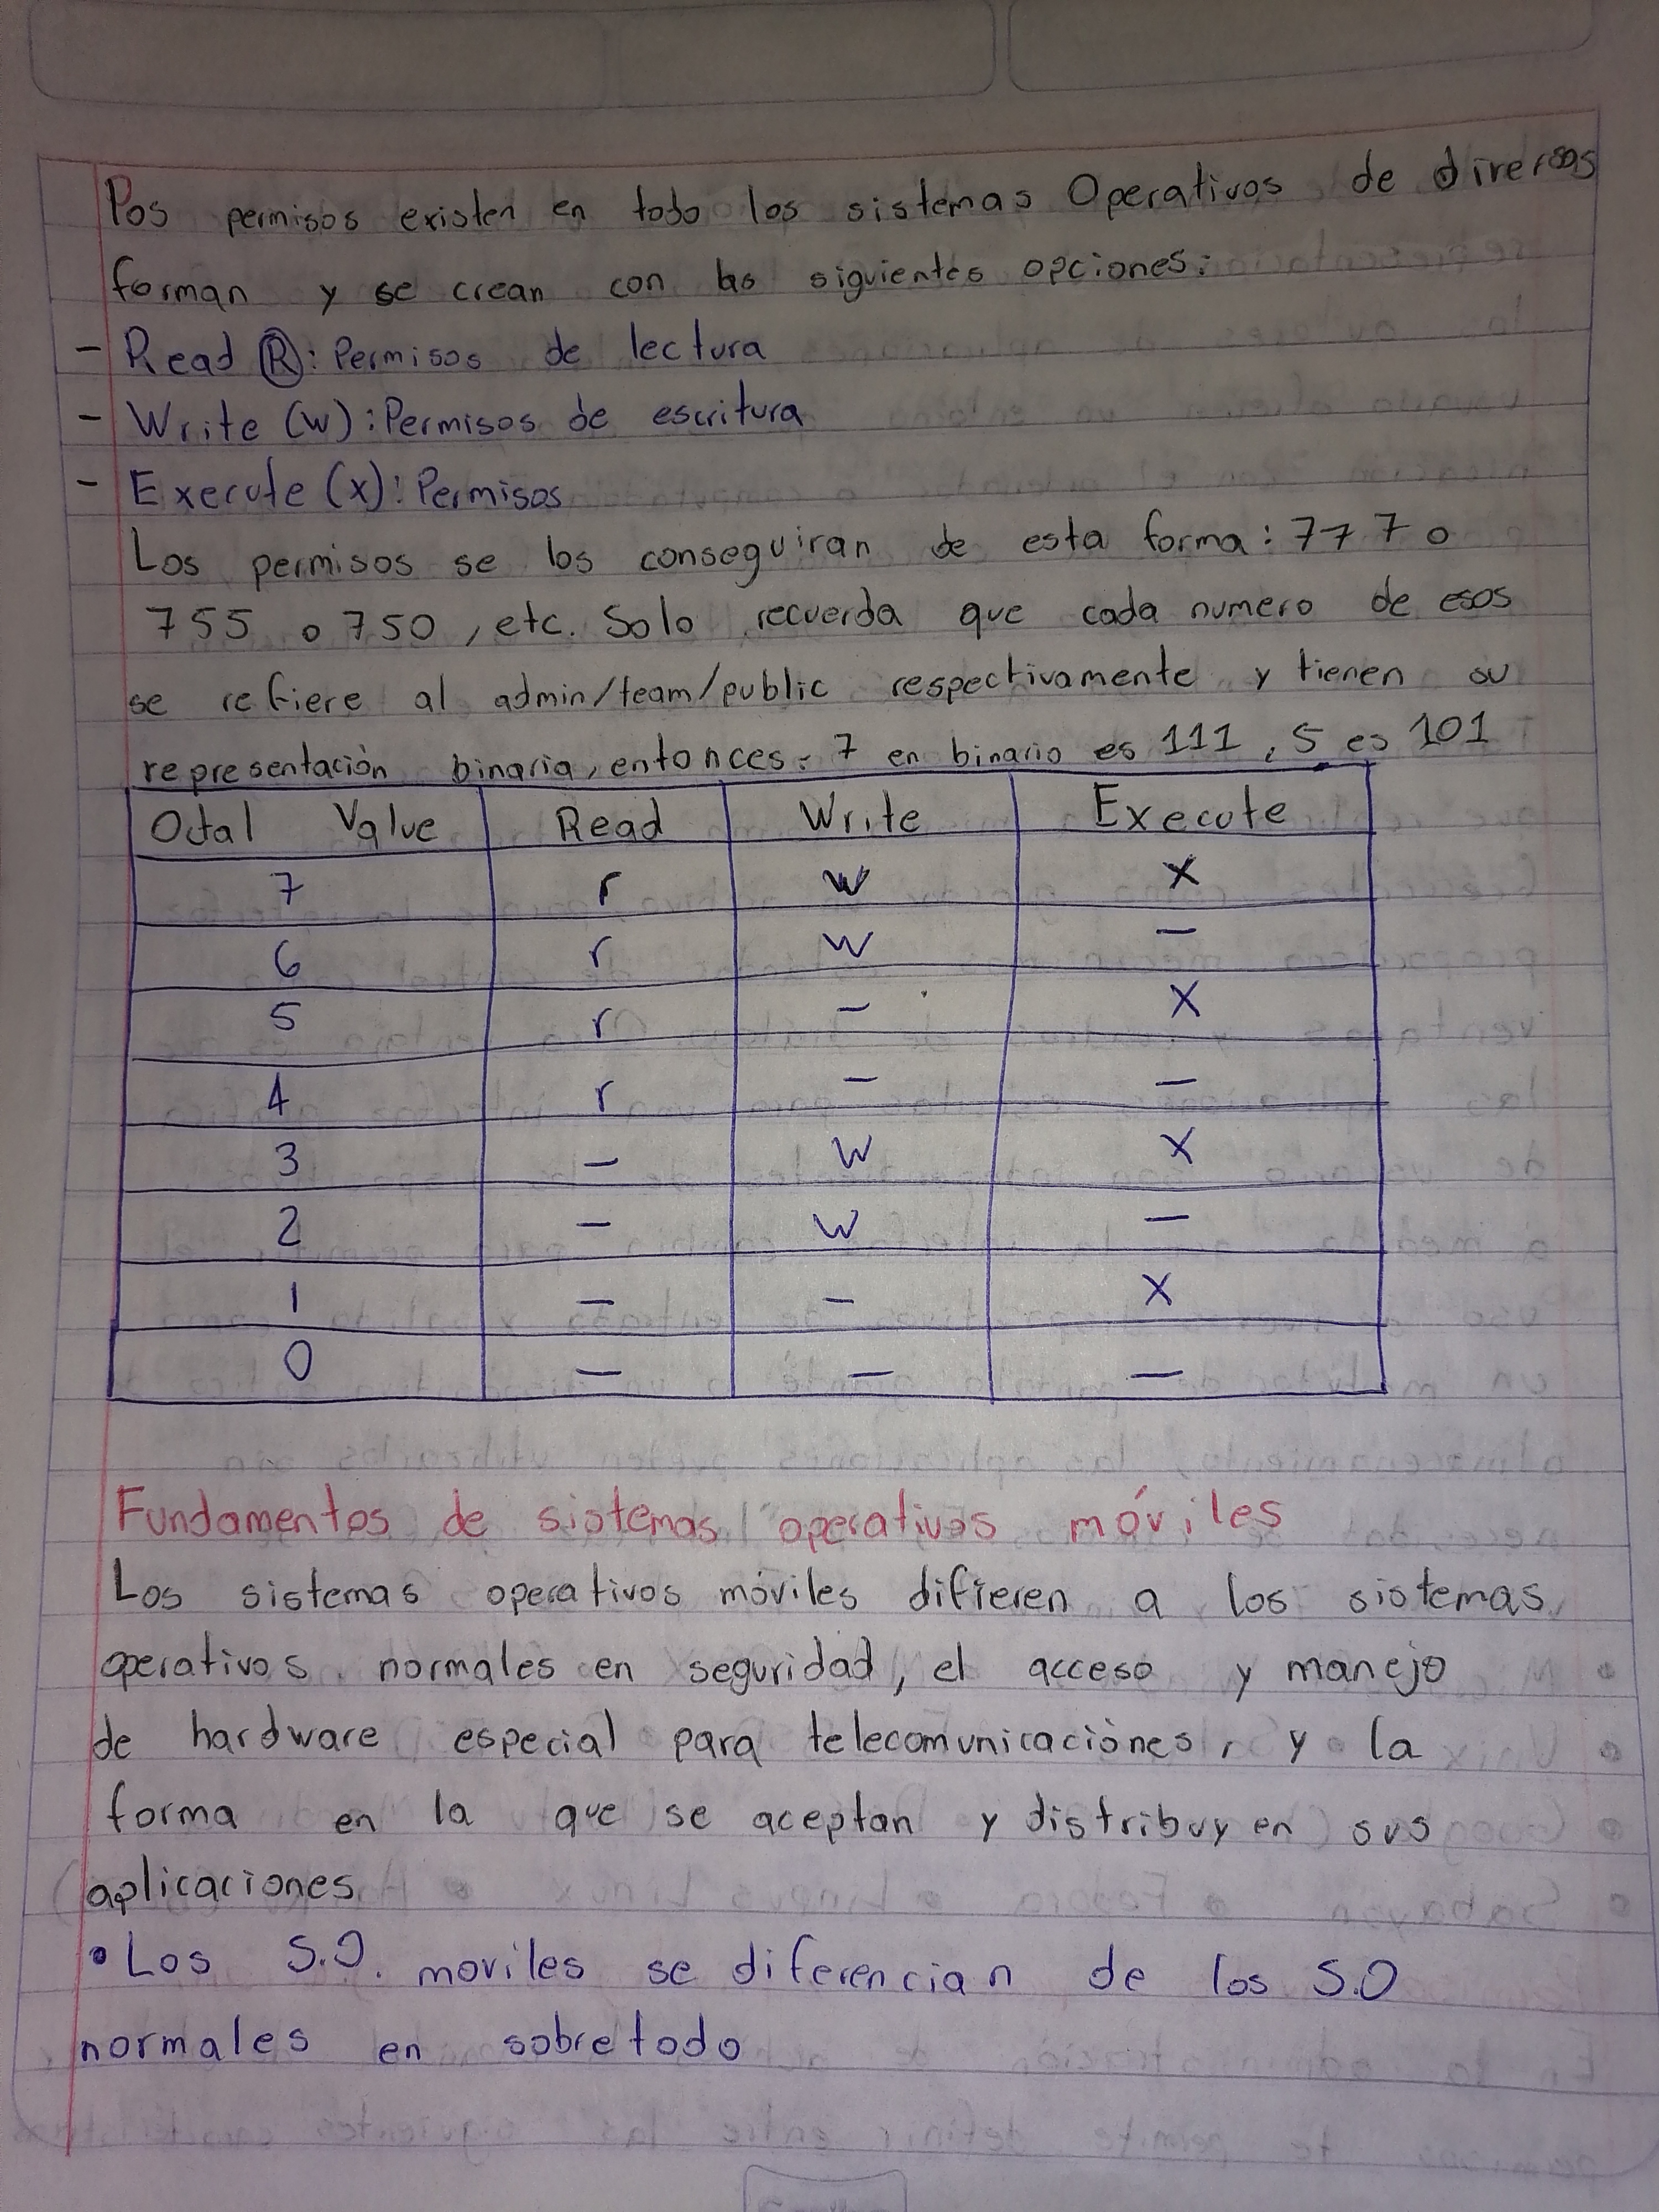 Pos permisos existen en todo los sistemas Operativos de diversas
forman y se crean con las siguientes opciones:
- Read Ⓡ: Permisos de lectura
- Write (w): Permisos de escritura
- Execute (x): Permisos
Los permisos se los conseguiran de esta forma: 777 o
755 o 750, etc. Solo recuerda que cada numero de esos
se refiere al admin/team/public respectivamente y tienen su
representación binaria, entonces: 7 en binario es 111, 5 es 101
Octal Value Read Write Execute
7 r w x
6 r w –
5 r – x
4 r – –
3 – w x
2 – w –
1 – – x
0 – – –
Fundamentos de sistemas operativos móviles
Los sistemas operativos móviles difieren a los sistemas
operativos normales en seguridad, el acceso y manejo
de hardware especial para telecomunicaciónes, y la
forma en la que se aceptan y distribuyen sus
aplicaciones
• Los S.O. moviles se diferencian de los S.O
normales en sobretodo